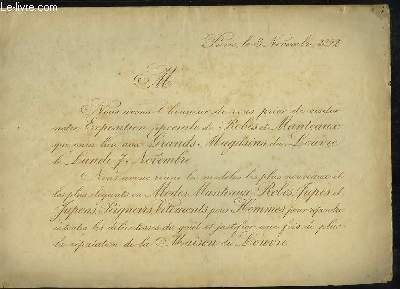 Paris, le 3 Novembre 1892
M
Nous avons l'honneur de vous prier de visiter
notre Exposition spéciale de Robes et Manteaux
qui aura lieu aux Grands Magasins du Louvre
le Lundi 7 Novembre
Nous avons réuni les modèles les plus nouveaux et
les plus élégants en Modes, Manteaux, Robes, Jupes et
Jupons, Peignoirs, Vêtements pour Hommes pour répondre
à toutes les délicatesses du goût et justifier une fois de plus
la réputation de la Maison du Louvre